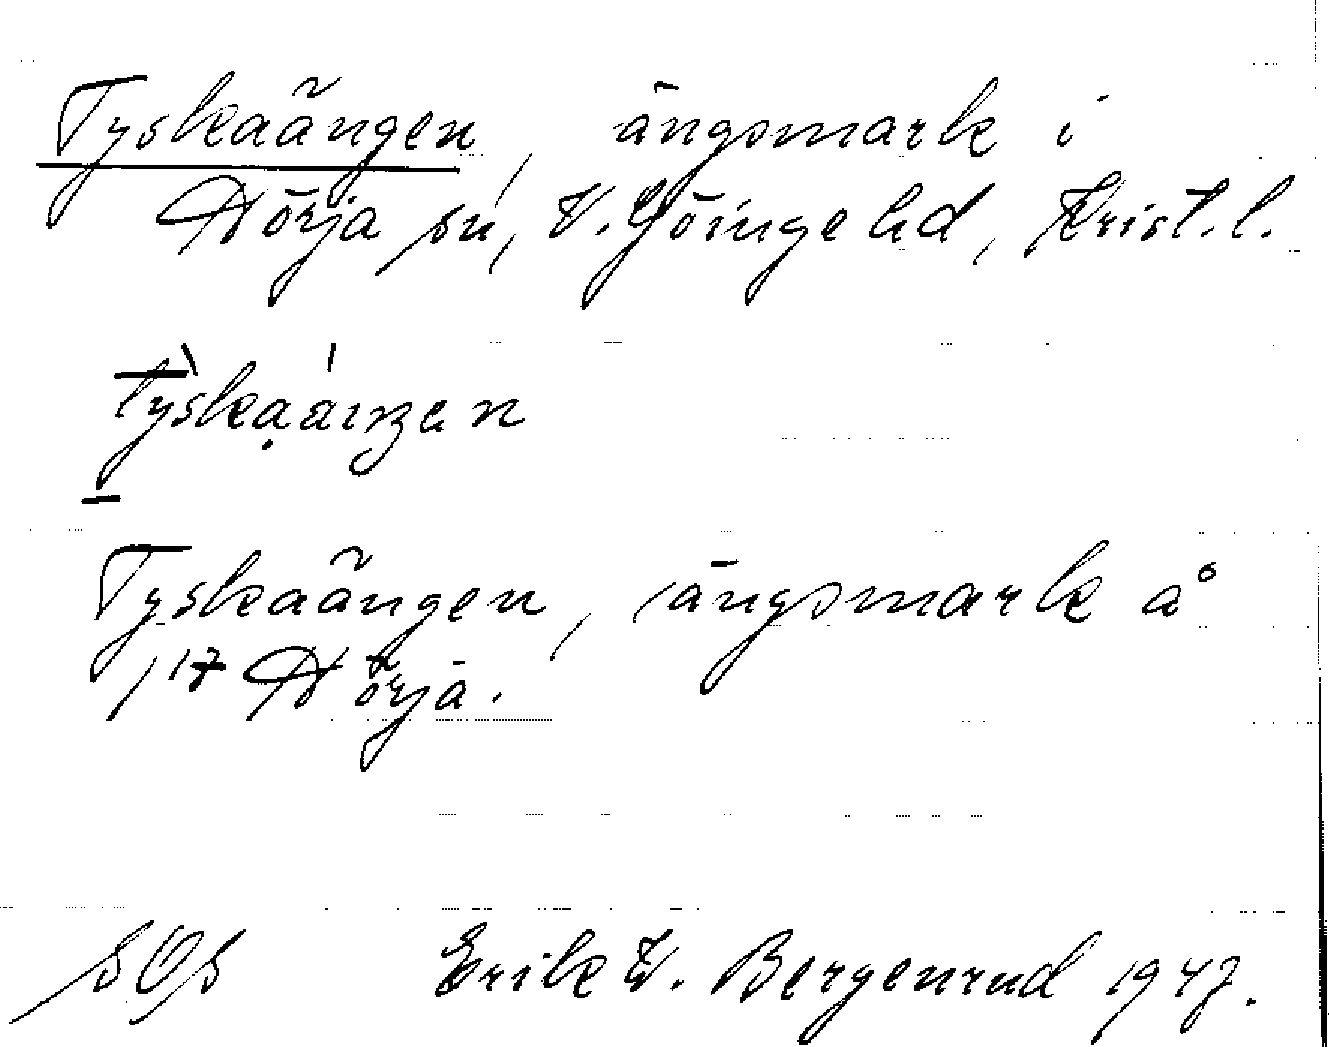 Tyskaängen, ängsmark i
Nörja sn, V. Göinge hd, Krist. l.
Tyskaängen, ängsmark å
1/17 Nörja.
SOS Erik W. Bergenrud 1947.